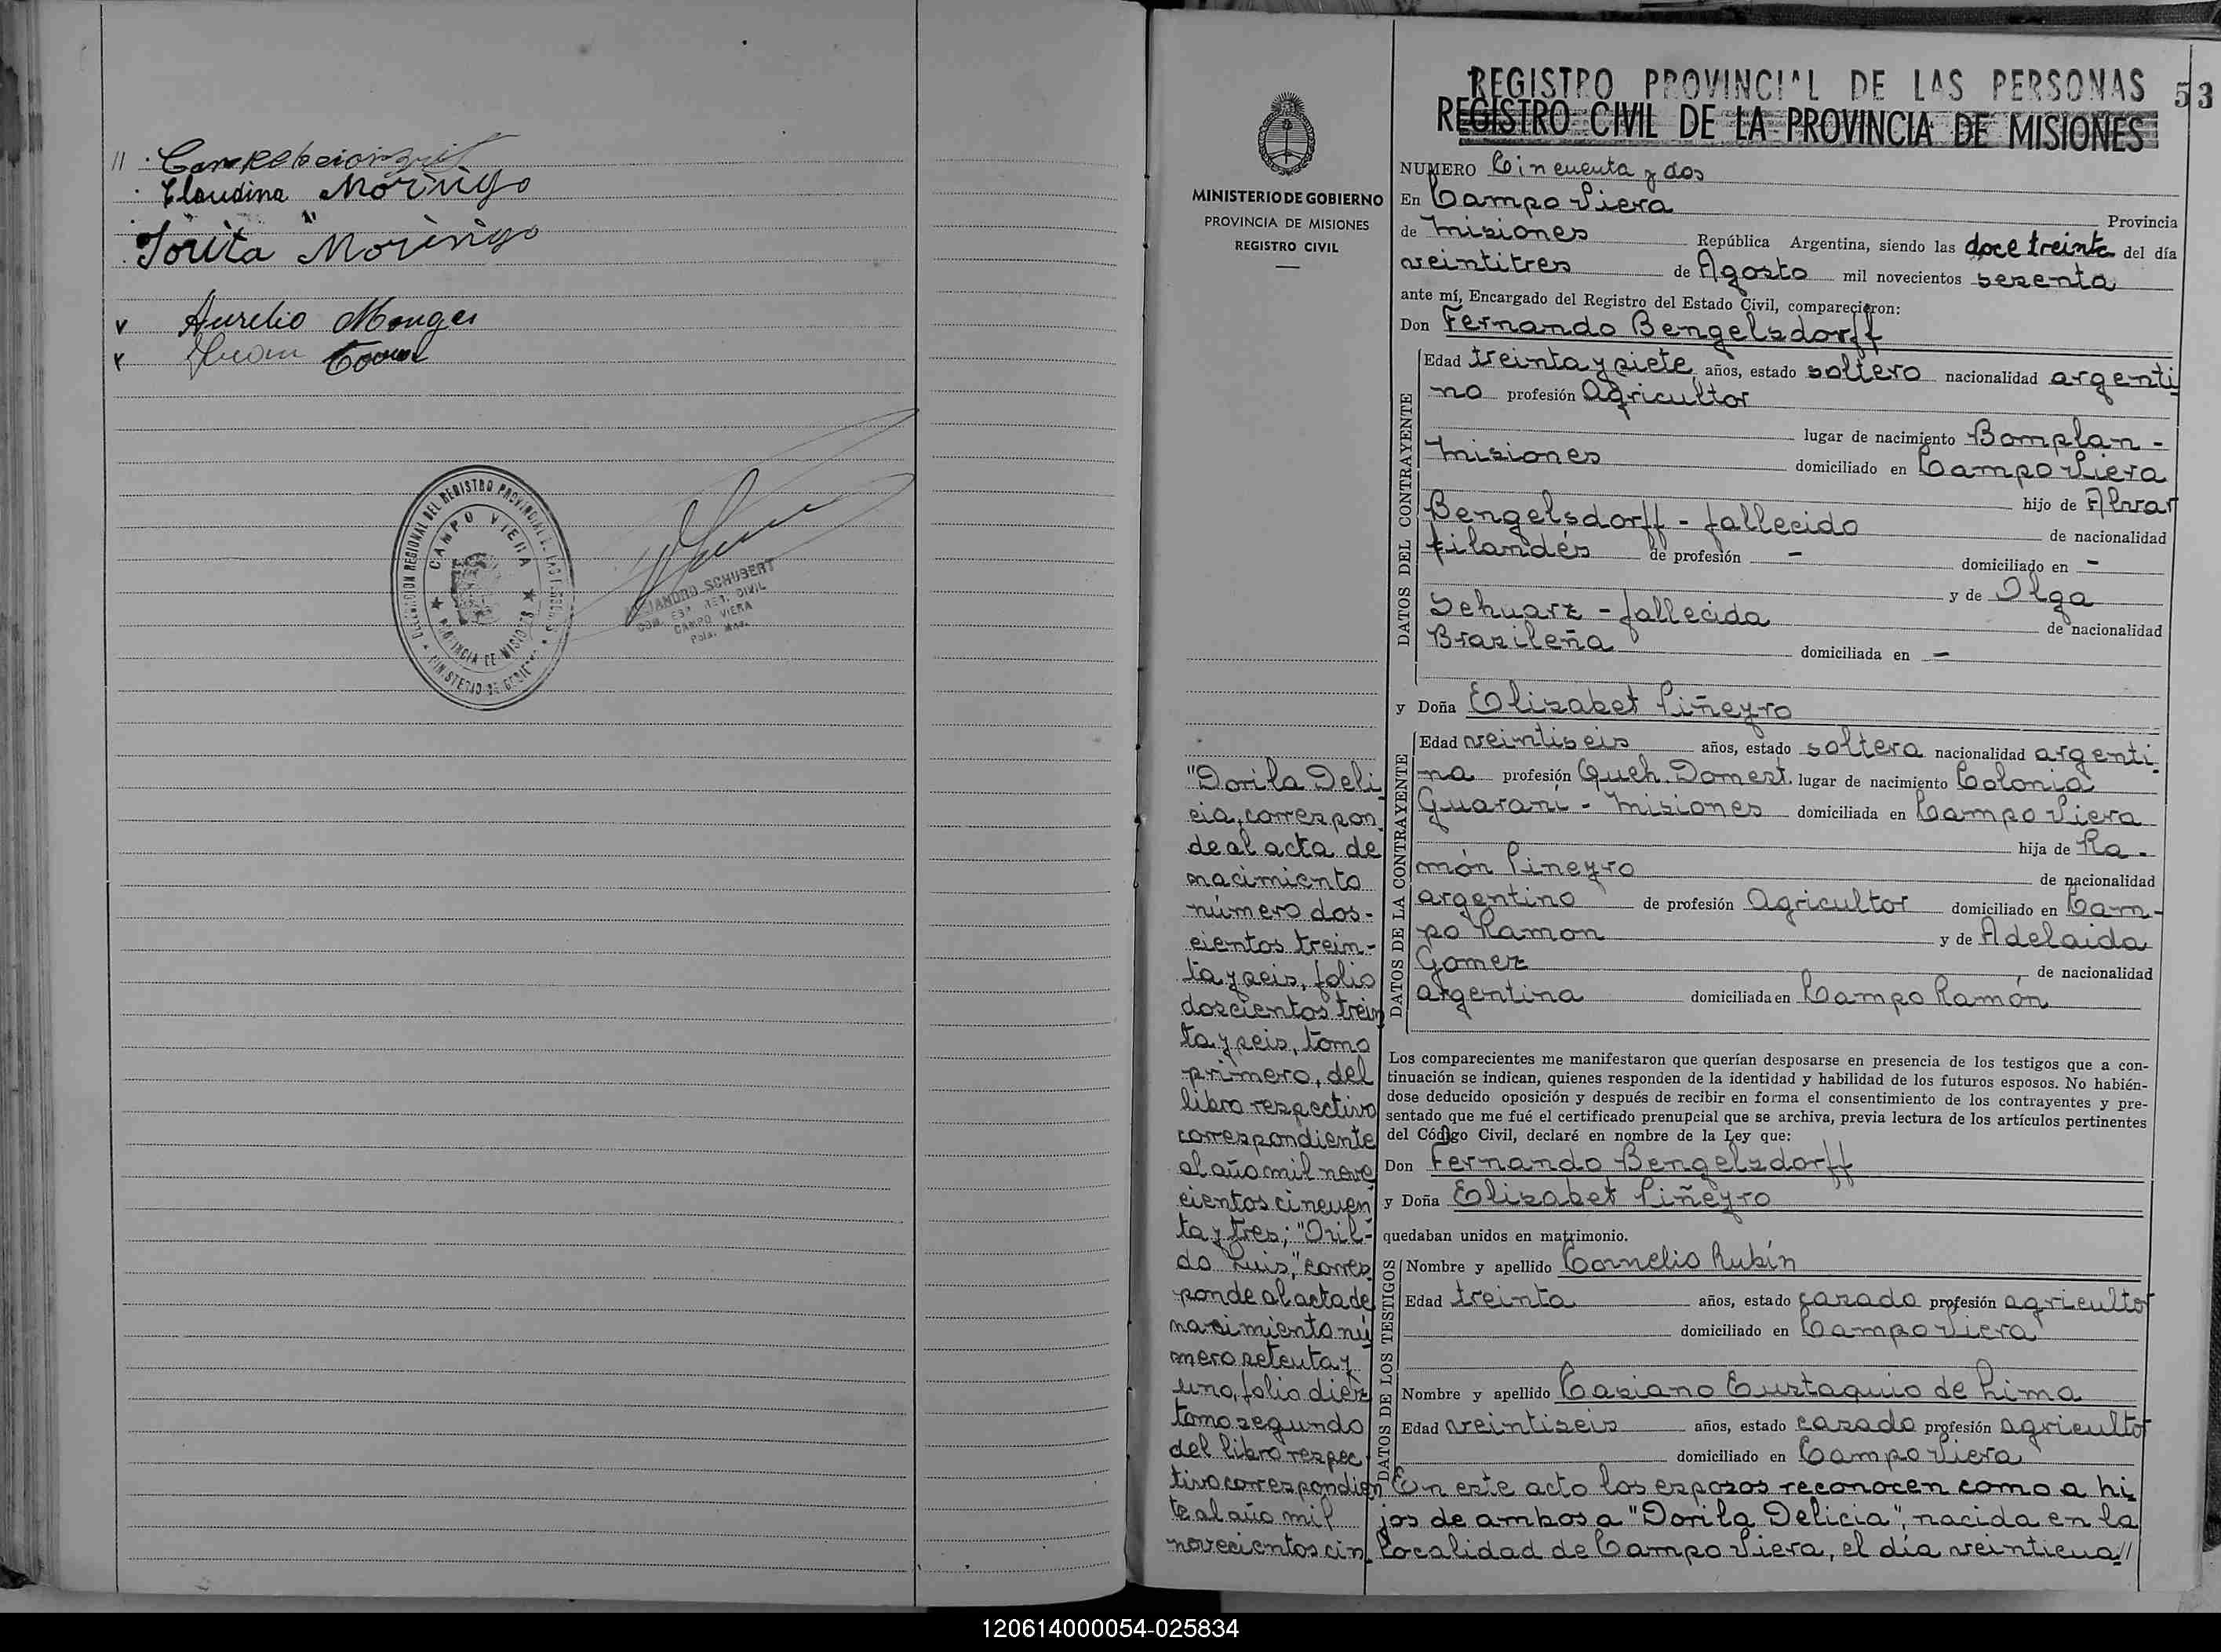 Claudina Morinigo
Torita Morinigo
Aurelio Monges
Juan
DELEGACION REGIONAL DEL REGISTRO PROVINCIAL DE LAS PERSONAS
CAMPO VIERA
PROVINCIA DE MISIONES
MINISTERIO DE GOBIERNO
ALEJANDRO SCHUBERT
REG. CIVIL
CAMPO VIERA
Pcia. Mnes.
MINISTERIO DE GOBIERNO
PROVINCIA DE MISIONES
REGISTRO CIVIL
"Dorila Deli
cia, correspon
de al acta de
nacimiento
número dos-
cientos trein-
ta y seis, folio
doscientos trein
ta y seis, tomo
primero, del
libro respectivo
correspondiente
al año mil nove
cientos cincuen
ta y tres; "Oril-
do Luis", corres
ponde al acta de
nacimiento nú
mero setenta y
uno, folio diez
tomo segundo
del libro respec
tivo correspondien
te al año mil
novecientos cin
REGISTRO PROVINCIAL DE LAS PERSONAS 53
REGISTRO CIVIL DE LA PROVINCIA DE MISIONES
NUMERO Cincuenta y dos
En Campo Viera Provincia
de Misiones República Argentina, siendo las doce treinta del día
veintitres de Agosto mil novecientos sesenta
ante mí, Encargado del Registro del Estado Civil, comparecieron:
Don Fernando Bengelsdorff
DATOS DEL CONTRAYENTE
Edad treinta y siete años, estado soltero nacionalidad argenti
no profesión Agricultor
lugar de nacimiento Bomplan -
Misiones domiciliado en Campo Viera
hijo de Alvar
Bengelsdorff - fallecido de nacionalidad
filandés de profesión - domiciliado en -
y de Olga
Schuarz - fallecida de nacionalidad
Brasileña domiciliada en -
y Doña Elizabet Piñeyro
DATOS DE LA CONTRAYENTE
Edad veintiseis años, estado soltera nacionalidad argenti
na profesión Queh. Domest. lugar de nacimiento Colonia
Guaraní - Misiones domiciliada en Campo Viera
hija de Ra-
món Pineyro de nacionalidad
argentino de profesión Agricultor domiciliado en Cam-
po Ramon y de Adelaida
Gomez de nacionalidad
argentina domiciliada en Campo Ramón
Los comparecientes me manifestaron que querían desposarse en presencia de los testigos que a con-
tinuación se indican, quienes responden de la identidad y habilidad de los futuros esposos. No habién-
dose deducido oposición y después de recibir en forma el consentimiento de los contrayentes y pre-
sentado que me fué el certificado prenupcial que se archiva, previa lectura de los artículos pertinentes
del Código Civil, declaré en nombre de la Ley que:
Don Fernando Bengelsdorff
y Doña Elizabet Piñeyro
quedaban unidos en matrimonio.
DATOS DE LOS TESTIGOS
Nombre y apellido Cornelio Rubín
Edad treinta años, estado casado profesión agricultor
domiciliado en Campo Viera
Nombre y apellido Casiano Eustaquio de Lima
Edad veintiseis años, estado casado profesión agricultor
domiciliado en Campo Viera
En este acto los esposos reconocen como a hi
jos de ambos a "Dorila Delicia", nacida en la
localidad de Campo Viera, el día veinticua//
120614000054-025834